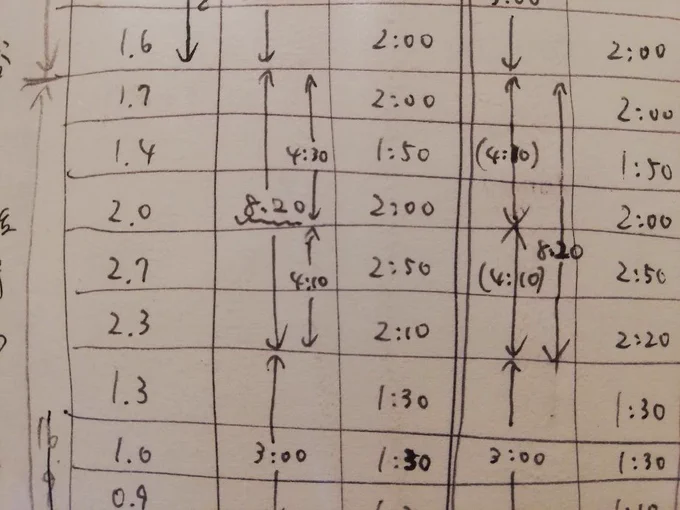 1.6 2:00 2:00
1.7 2:00 2:00
1.4 4:30 1:50 1:50
2.0 8:20 2:00 2:00
8:20
2.7 4:10 2:50 (4:10) 2:50
2.3 2:10 2:20
1.3 1:30 1:30
1.0 3:00 1:30 3:00 1:30
0.9